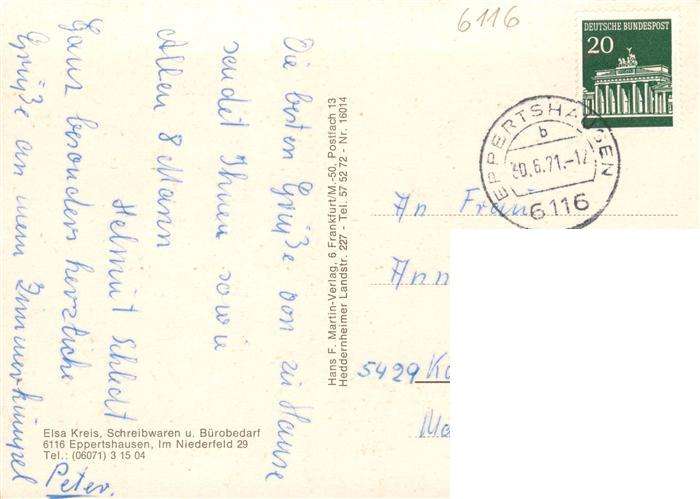 6116
DEUTSCHE BUNDESPOST
20
EPPERTSHAUSEN
b
30.6.71.-17
6116
Die besten Grüße von zu Hause
sendet Ihnen sowie
Allen 8 Mann
Helmut Schlecht
Ganz besonders herzliche
Grüße an mein Zimmerkumpel
Peter.
Hans F. Martin-Verlag, 6 Frankfurt/M.-50, Postfach 13
Heddernheimer Landstr. 227 - Tel. 57 52 72 - Nr. 16014
An Frau
Ann
5429
Elsa Kreis, Schreibwaren u. Bürobedarf
6116 Eppertshausen, Im Niederfeld 29
Tel.: (06071) 3 15 04